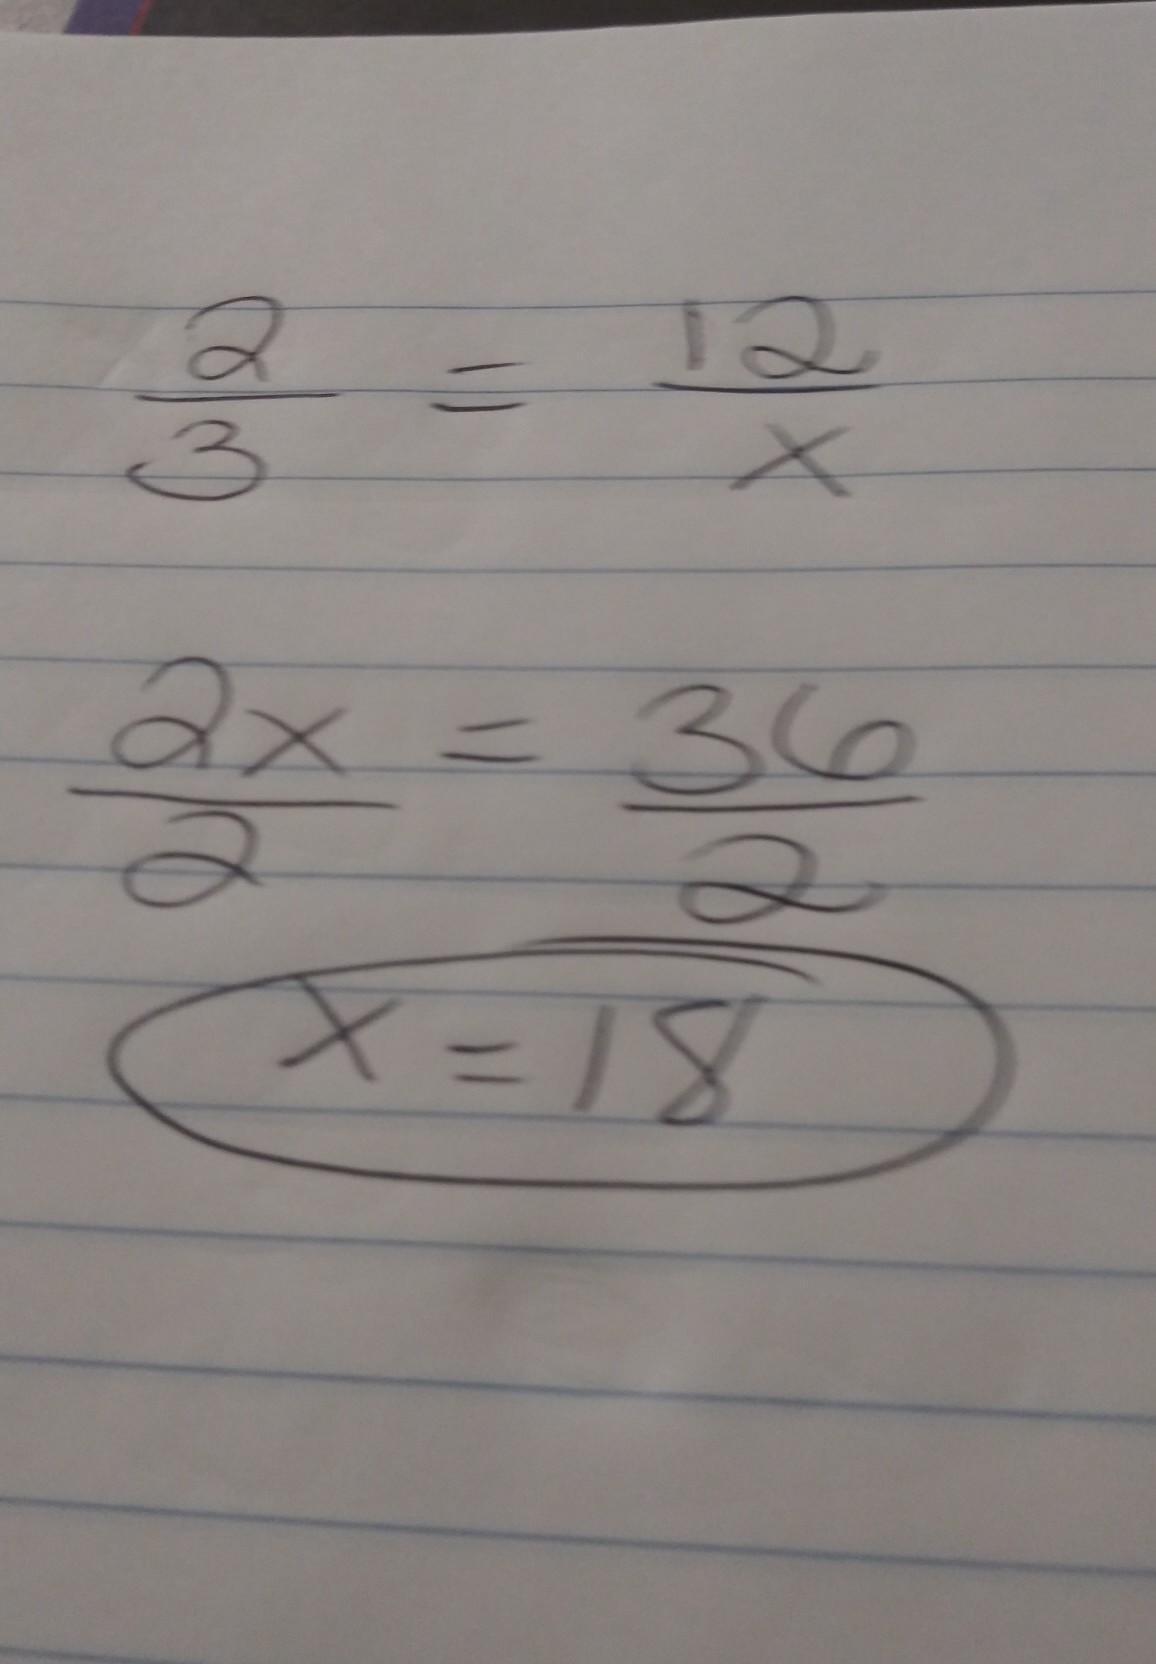 2/3 = 12/x
2x/2 = 36/2
x = 18